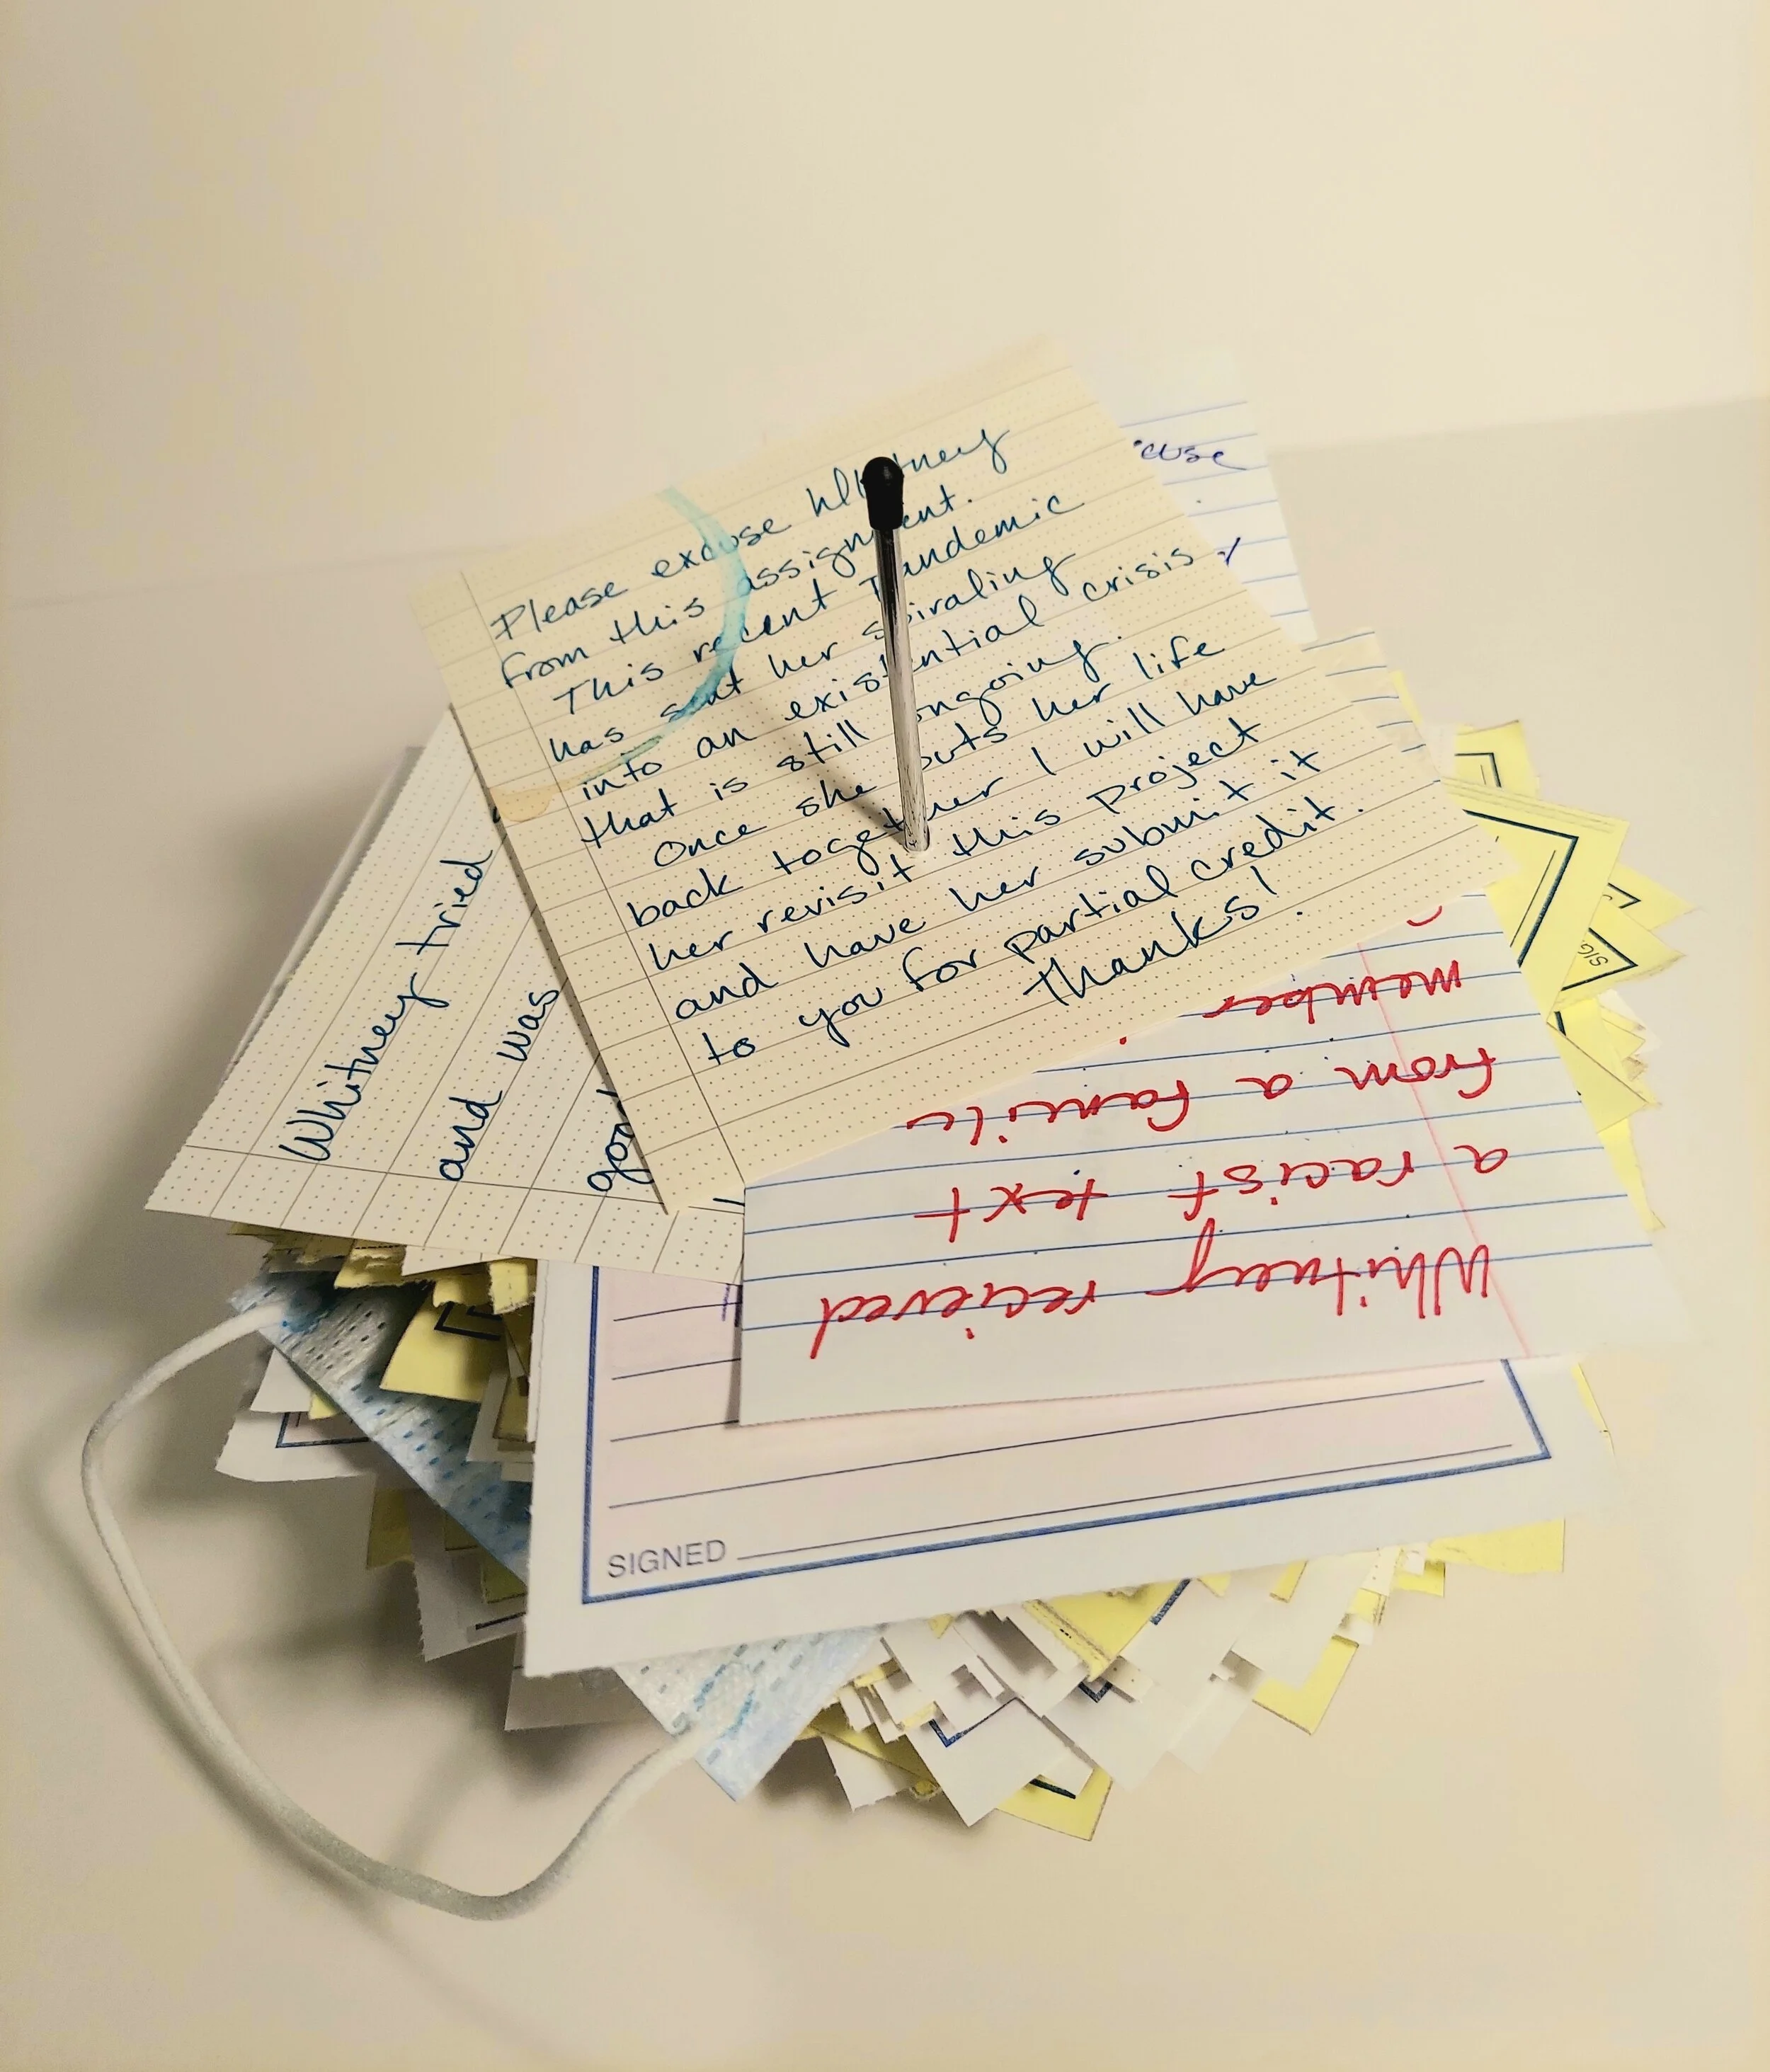 Please excuse Whitney
from this assignment.
This recent Pandemic
has sent her spiraling
into an existential crisis
that is still ongoing.
Once she puts her life
back together I will have
her revisit this project
and have her submit it
to you for partial credit.
Thanks!
Whitney tried
and was
Whitney recieved
a racist text
from a family
member
SIGNED